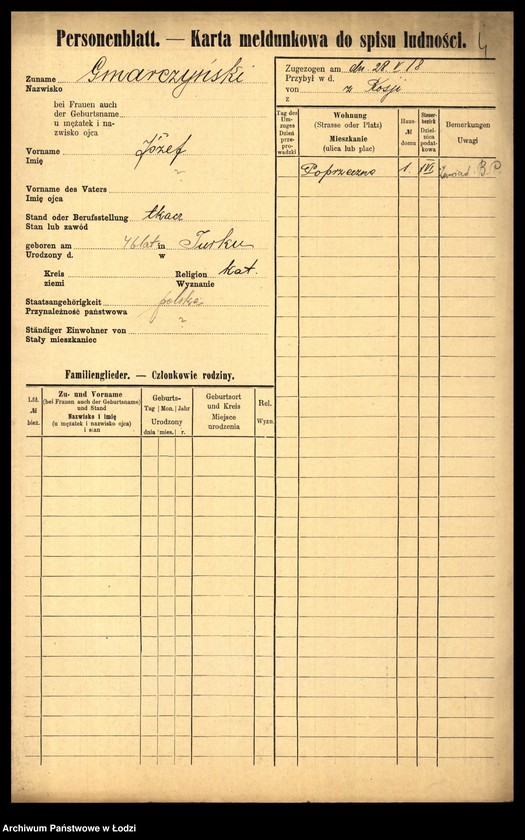 Personenblatt. — Karta meldunkowa do spisu ludności. 4
Zuname Gmarczyński
Nazwisko
bei Frauen auch
der Geburtsname
u mężatek i na-
zwisko ojca
Vorname Józef
Imię ?
Vorname des Vaters
Imię ojca
Stand oder Berufsstellung tkacz
Stan lub zawód
geboren am 46 lat in Turku
Urodzony d. w
Kreis Religion kat.
ziemi Wyznanie
Staatsangehörigkeit polska
Przynależność państwowa ?
Ständiger Einwohner von
Stały mieszkaniec
Familienglieder. — Członkowie rodziny.
Lfd. № bież.
Zu- und Vorname
(bei Frauen auch der Geburtsname)
und Stand
Nazwisko i imię
(u mężatek i nazwisko ojca)
i stan
Geburts-
Tag Mon. Jahr
Urodzony
dnia mies. r.
Geburtsort
und Kreis
Miejsce
urodzenia
Rel.
Wyzn.
Zugezogen am dn. 28.V.18
Przybył w d.
von z Rosji
z
Tag des
Um-
zuges
Dzień
prze-
pro-
wadzki
Wohnung
(Strasse oder Platz)
Mieszkanie
(ulica lub plac)
Haus-
№
domu
Steuer-
bezirk
Dziel-
nica
podat-
kowa
Bemerkungen
Uwagi
Poprzeczna 1. B.P.
Archiwum Państwowe w Łodzi